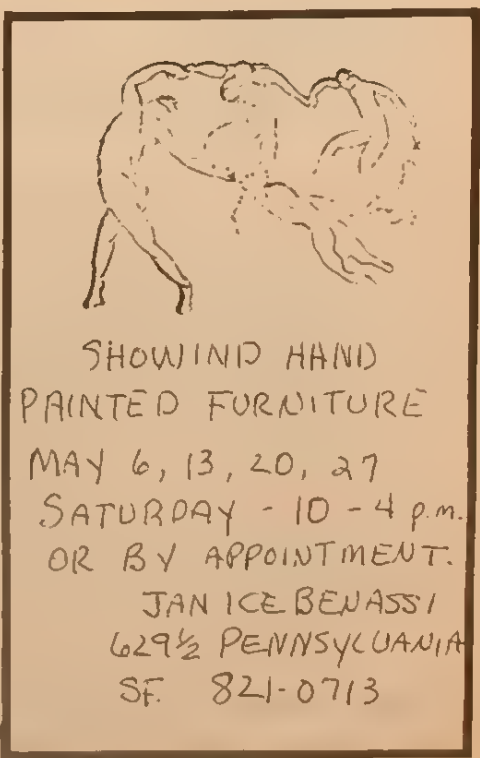 SHOWIND HAND
PAINTED FURNITURE
MAY 6, 13, 20, 27
SATURDAY - 10 - 4 p.m.
OR BY APPOINTMENT.
JANICE BENASSI
629½ PENNSYLVANIA
SF. 821-0713